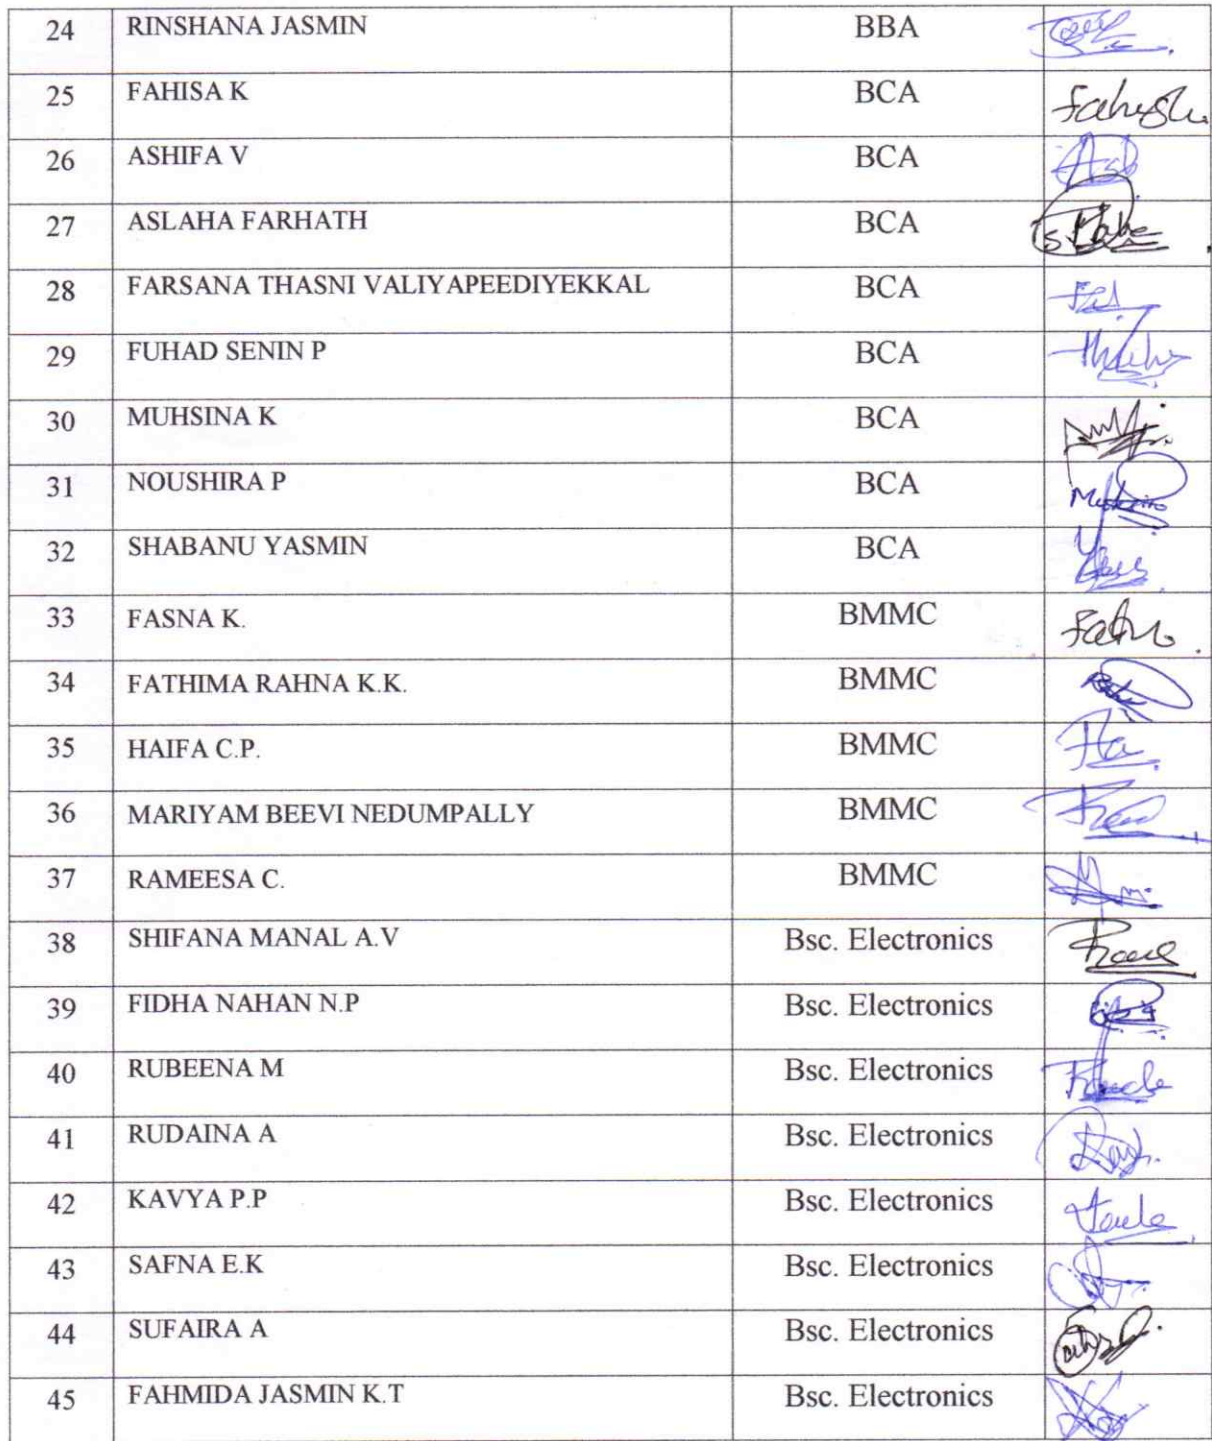 24 RINSHANA JASMIN BBA
25 FAHISA K BCA
26 ASHIFA V BCA
27 ASLAHA FARHATH BCA
28 FARSANA THASNI VALIYAPEEDIYEKKAL BCA
29 FUHAD SENIN P BCA
30 MUHSINA K BCA
31 NOUSHIRA P BCA
32 SHABANU YASMIN BCA
33 FASNA K. BMMC
34 FATHIMA RAHNA K.K. BMMC
35 HAIFA C.P. BMMC
36 MARIYAM BEEVI NEDUMPALLY BMMC
37 RAMEESA C. BMMC
38 SHIFANA MANAL A.V Bsc. Electronics
39 FIDHA NAHAN N.P Bsc. Electronics
40 RUBEENA M Bsc. Electronics
41 RUDAINA A Bsc. Electronics
42 KAVYA P.P Bsc. Electronics
43 SAFNA E.K Bsc. Electronics
44 SUFAIRA A Bsc. Electronics
45 FAHMIDA JASMIN K.T Bsc. Electronics